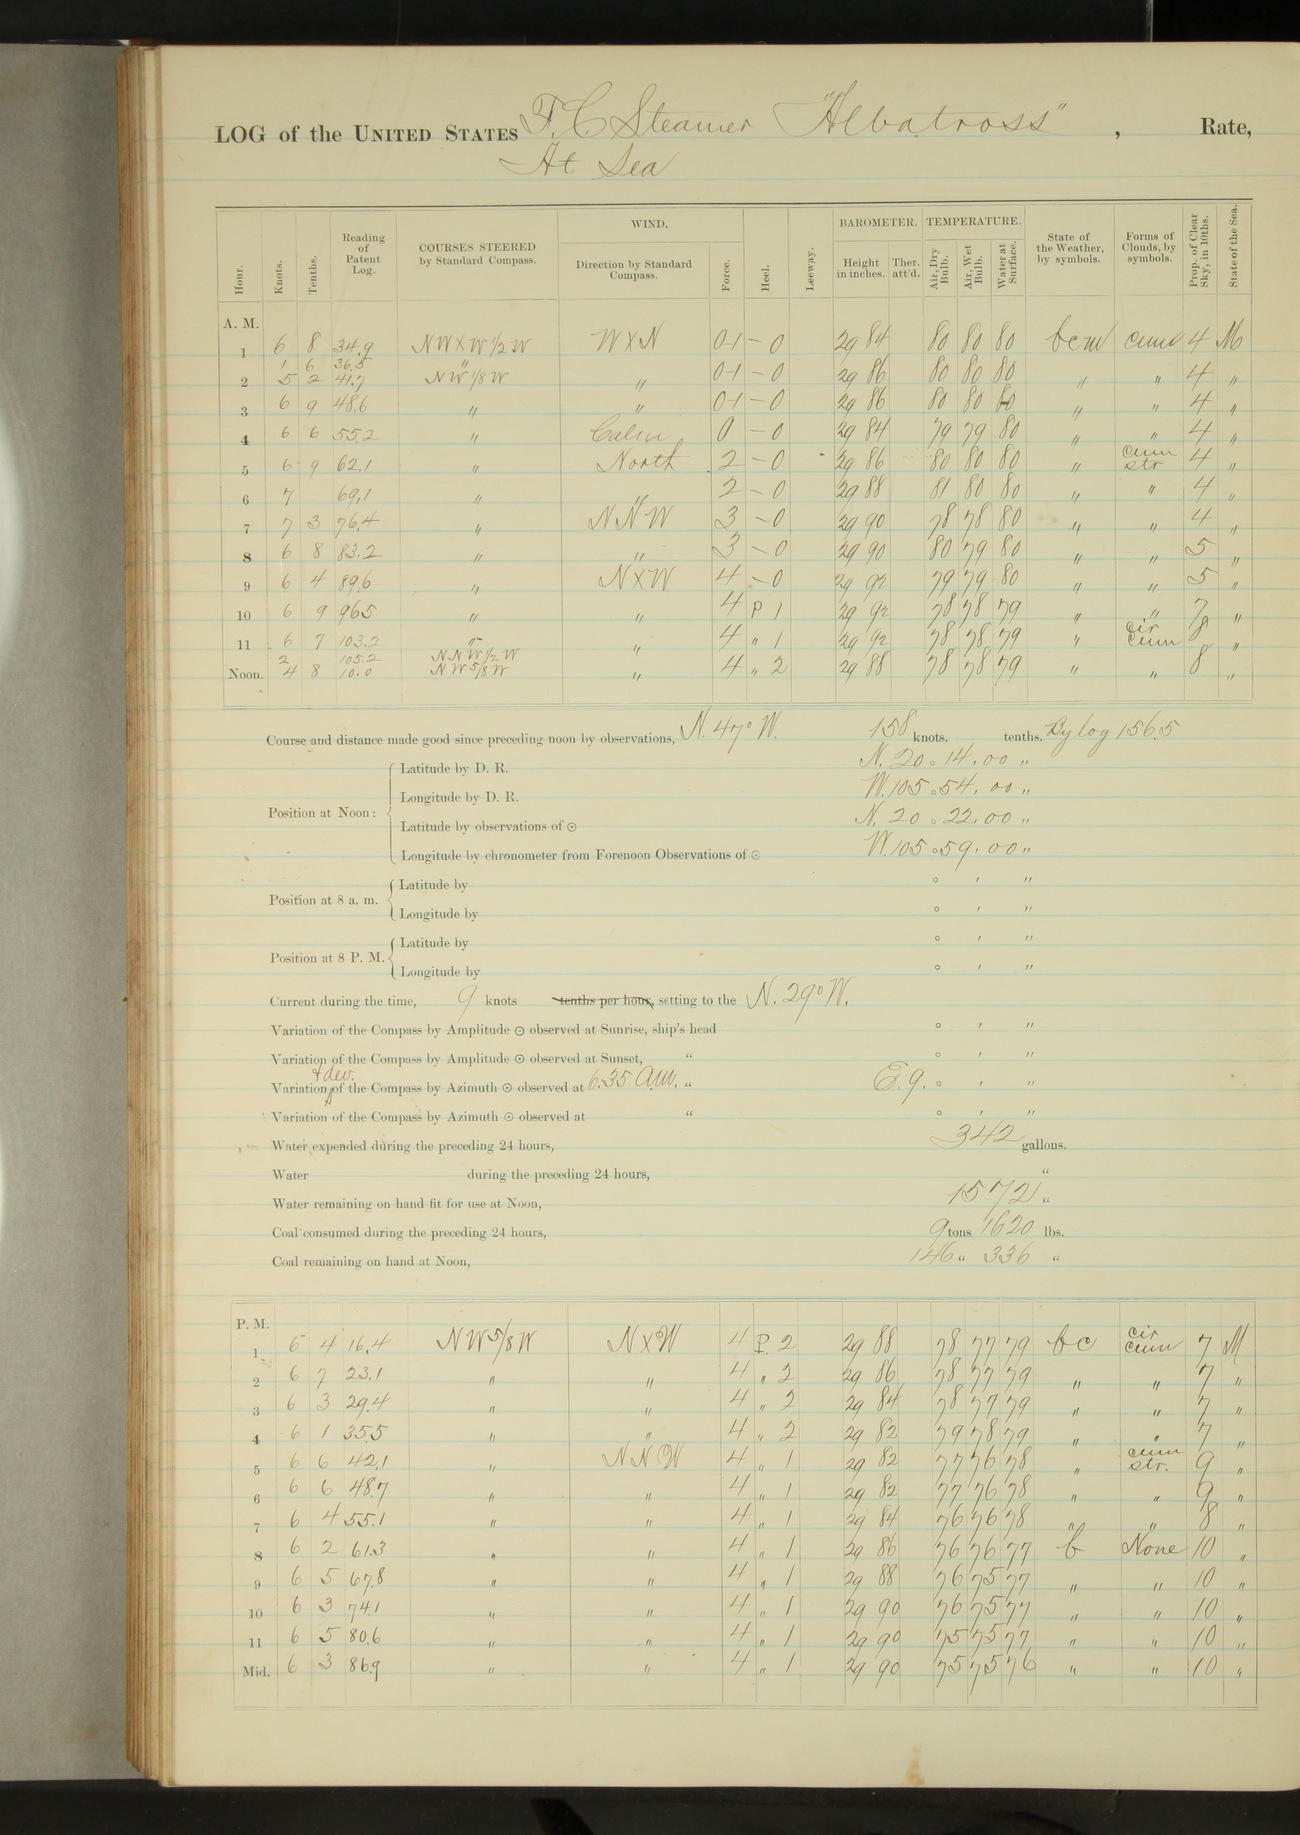 LOG of the UNITED STATES F. C. Steamer "Albatross", Rate,
At Sea
Hour. Knots. Tenths. Reading of Patent Log. COURSES STEERED by Standard Compass. WIND. Direction by Standard Compass. Force. Heel. Leeway. BAROMETER. Height in inches. Ther. att'd. TEMPERATURE. Air, Dry Bulb. Air, Wet Bulb. Water at Surface. State of the Weather, by symbols. Forms of Clouds, by symbols. Prop. of Clear Sky, in 10ths. State of the Sea.
A. M.
1 6 8 34.9 NWXW1/2W WXN 0-1 - 0 29 84 80 80 80 bcm cum 4 M
1 6 36.5 "
2 5 2 41.7 NW1/8W " 0-1 - 0 29 86 80 80 80 " " 4 "
3 6 9 48.6 " " 0-1 - 0 29 86 80 80 80 " " 4 "
4 6 6 55.2 " Calm 0 - 0 29 84 79 79 80 " " 4 "
5 6 9 62.1 " North 2 - 0 29 86 80 80 80 " cum str 4 "
6 7 69.1 " " 2 - 0 29 88 81 80 80 " " 4 "
7 7 3 76.4 " NNW 3 - 0 29 90 78 78 80 " " 4 "
8 6 8 83.2 " " 3 - 0 29 90 80 79 80 " " 5 "
9 6 4 89.6 " NXW 4 - 0 29 92 79 79 80 " " 5 "
10 6 9 96.5 " " 4 P 1 29 92 78 78 79 " " 7 "
11 6 7 103.2 " " 4 " 1 29 92 78 78 79 " cir cum 8 "
2 105.2 NNW1/2W
Noon. 4 8 10.0 NW5/8W " 4 " 2 29 88 78 78 79 " " 8 "
Course and distance made good since preceding noon by observations, N. 47° W. 158 knots. tenths. By log 156.5
Latitude by D. R. N. 20 ° 14 ' 00 "
Longitude by D. R. W. 105 ° 54 ' 00 "
Position at Noon:
Latitude by observations of ☉ N. 20 ° 22 ' 00 "
Longitude by chronometer from Forenoon Observations of ☉ W. 105 ° 59 ' 00 "
Latitude by ° ' "
Position at 8 a. m.
Longitude by ° ' "
Latitude by ° ' "
Position at 8 P. M.
Longitude by ° ' "
Current during the time, 9 knots tenths per hour, setting to the N. 29° W.
Variation of the Compass by Amplitude ☉ observed at Sunrise, ship's head ° ' "
Variation of the Compass by Amplitude ☉ observed at Sunset, " ° ' "
& dev.
Variation of the Compass by Azimuth ☉ observed at 6.35 a.m. " E. 9. ° ' "
Variation of the Compass by Azimuth ☉ observed at " ° ' "
Water expended during the preceding 24 hours, 342 gallons.
Water during the preceding 24 hours, "
Water remaining on hand fit for use at Noon, 1572 "
Coal consumed during the preceding 24 hours, 9 tons 1620 lbs.
Coal remaining on hand at Noon, 146 " 336 "
P. M.
1 6 4 16.4 NW5/8W NXW 4 P. 2 29 88 78 77 79 bc cir cum 7 M
2 6 7 23.1 " " 4 " 2 29 86 78 77 79 " " 7 "
3 6 3 29.4 " " 4 " 2 29 84 78 77 79 " " 7 "
4 6 1 35.5 " " 4 " 2 29 82 79 78 79 " " 7 "
5 6 6 42.1 " NNW 4 " 1 29 82 77 76 78 " cum str. 9 "
6 6 6 48.7 " " 4 " 1 29 82 77 76 78 " " 9 "
7 6 4 55.1 " " 4 " 1 29 84 76 76 78 " " 8 "
8 6 2 61.3 " " 4 " 1 29 86 76 76 77 b None 10 "
9 6 5 67.8 " " 4 " 1 29 88 76 75 77 " " 10 "
10 6 3 74.1 " " 4 " 1 29 90 76 75 77 " " 10 "
11 6 5 80.6 " " 4 " 1 29 90 75 75 77 " " 10 "
Mid. 6 3 86.9 " " 4 " 1 29 90 75 75 76 " " 10 "